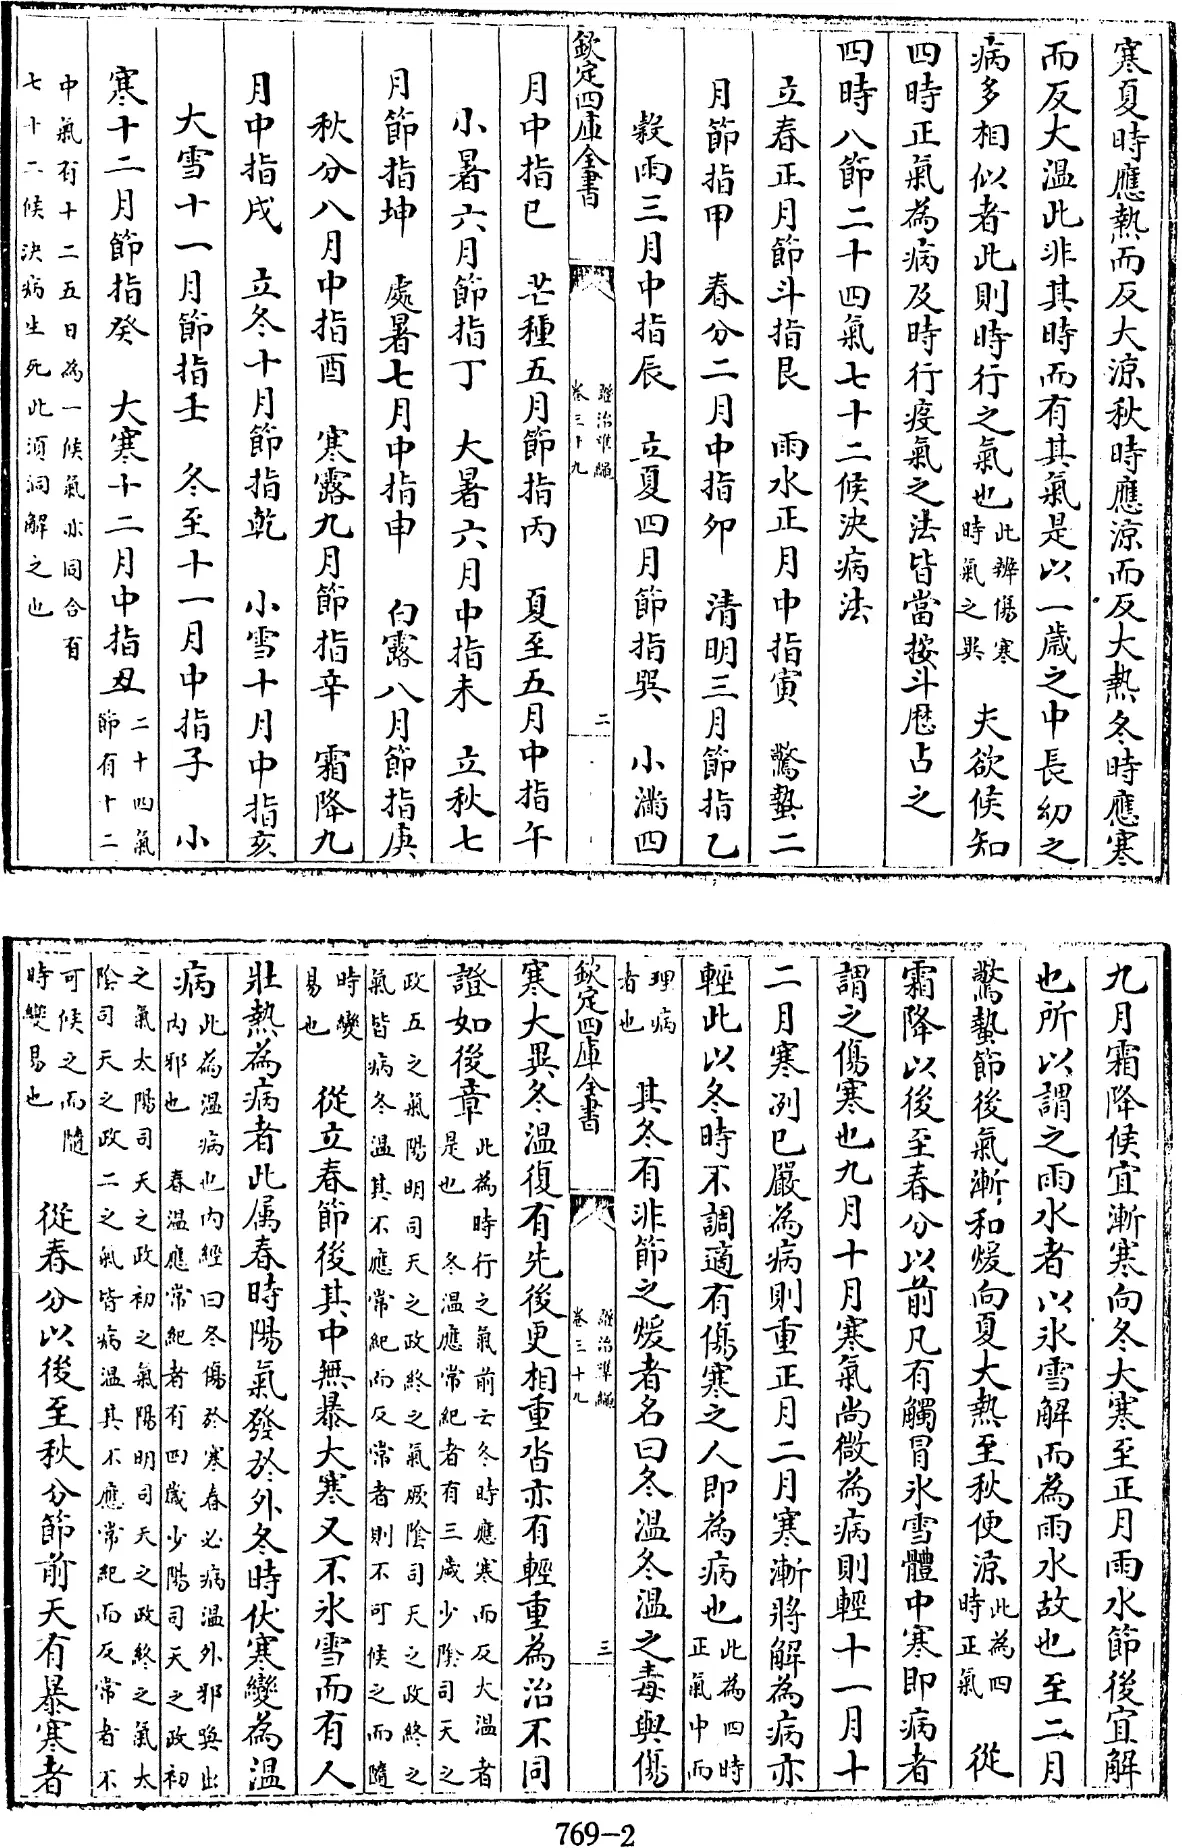 寒夏時應熱而反大涼秋時應涼而反大熱冬時應寒
而反大溫此非其時而有其氣是以一歲之中長幼之
病多相似者此則時行之氣也此辨傷寒時氣之異 夫欲候知
四時正氣為病及時行疫氣之法皆當按斗厯占之
四時八節二十四氣七十二候決病法
立春正月節斗指艮 雨水正月中指寅 驚蟄二
月節指甲 春分二月中指卯 清明三月節指乙
穀雨三月中指辰 立夏四月節指巽 小滿四
欽定四庫全書
證治準繩
卷三十九
二
月中指巳 芒種五月節指丙 夏至五月中指午
小暑六月節指丁 大暑六月中指未 立秋七
月節指坤 處暑七月中指申 白露八月節指庚
秋分八月中指酉 寒露九月節指辛 霜降九
月中指戌 立冬十月節指乾 小雪十月中指亥
大雪十一月節指壬 冬至十一月中指子 小
寒十二月節指癸 大寒十二月中指丑二十四氣節有十二
中氣有十二五日為一候氣亦同合有
七十二候決病生死此須洞解之也
九月霜降候宜漸寒向冬大寒至正月雨水節後宜解
也所以謂之雨水者以氷雪解而為雨水故也至二月
驚蟄節後氣漸和煖向夏大熱至秋便涼此為四時正氣 從
霜降以後至春分以前凡有觸冒氷雪體中寒即病者
謂之傷寒也九月十月寒氣尚微為病則輕十一月十
二月寒冽已嚴為病則重正月二月寒漸將解為病亦
輕此以冬時不調適有傷寒之人即為病也此為四時正氣中而
理病者也 其冬有非節之煖者名曰冬溫冬溫之毒與傷
欽定四庫全書
證治準繩
卷三十九
三
寒大異冬溫復有先後更相重沓亦有輕重為治不同
證如後章此為時行之氣前云冬時應寒而反大溫者是也 冬溫應常紀者有三歲少陰司天之
政五之氣陽明司天之政終之氣厥陰司天之政終之
氣皆病冬溫其不應常紀而反常者則不可候之而隨
時變易也 從立春節後其中無暴大寒又不氷雪而有人
壯熱為病者此属春時陽氣發於外冬時伏寒變為溫
病此為溫病也内經曰冬傷於寒春必病溫外邪與出内邪也 春溫應常紀者有四歲少陽司天之政初
之氣太陽司天之政初之氣陽明司天之政終之氣太
陰司天之政二之氣皆病溫其不應常紀而反常者不
可候之而隨時變易也 從春分以後至秋分節前天有暴寒者
769-2